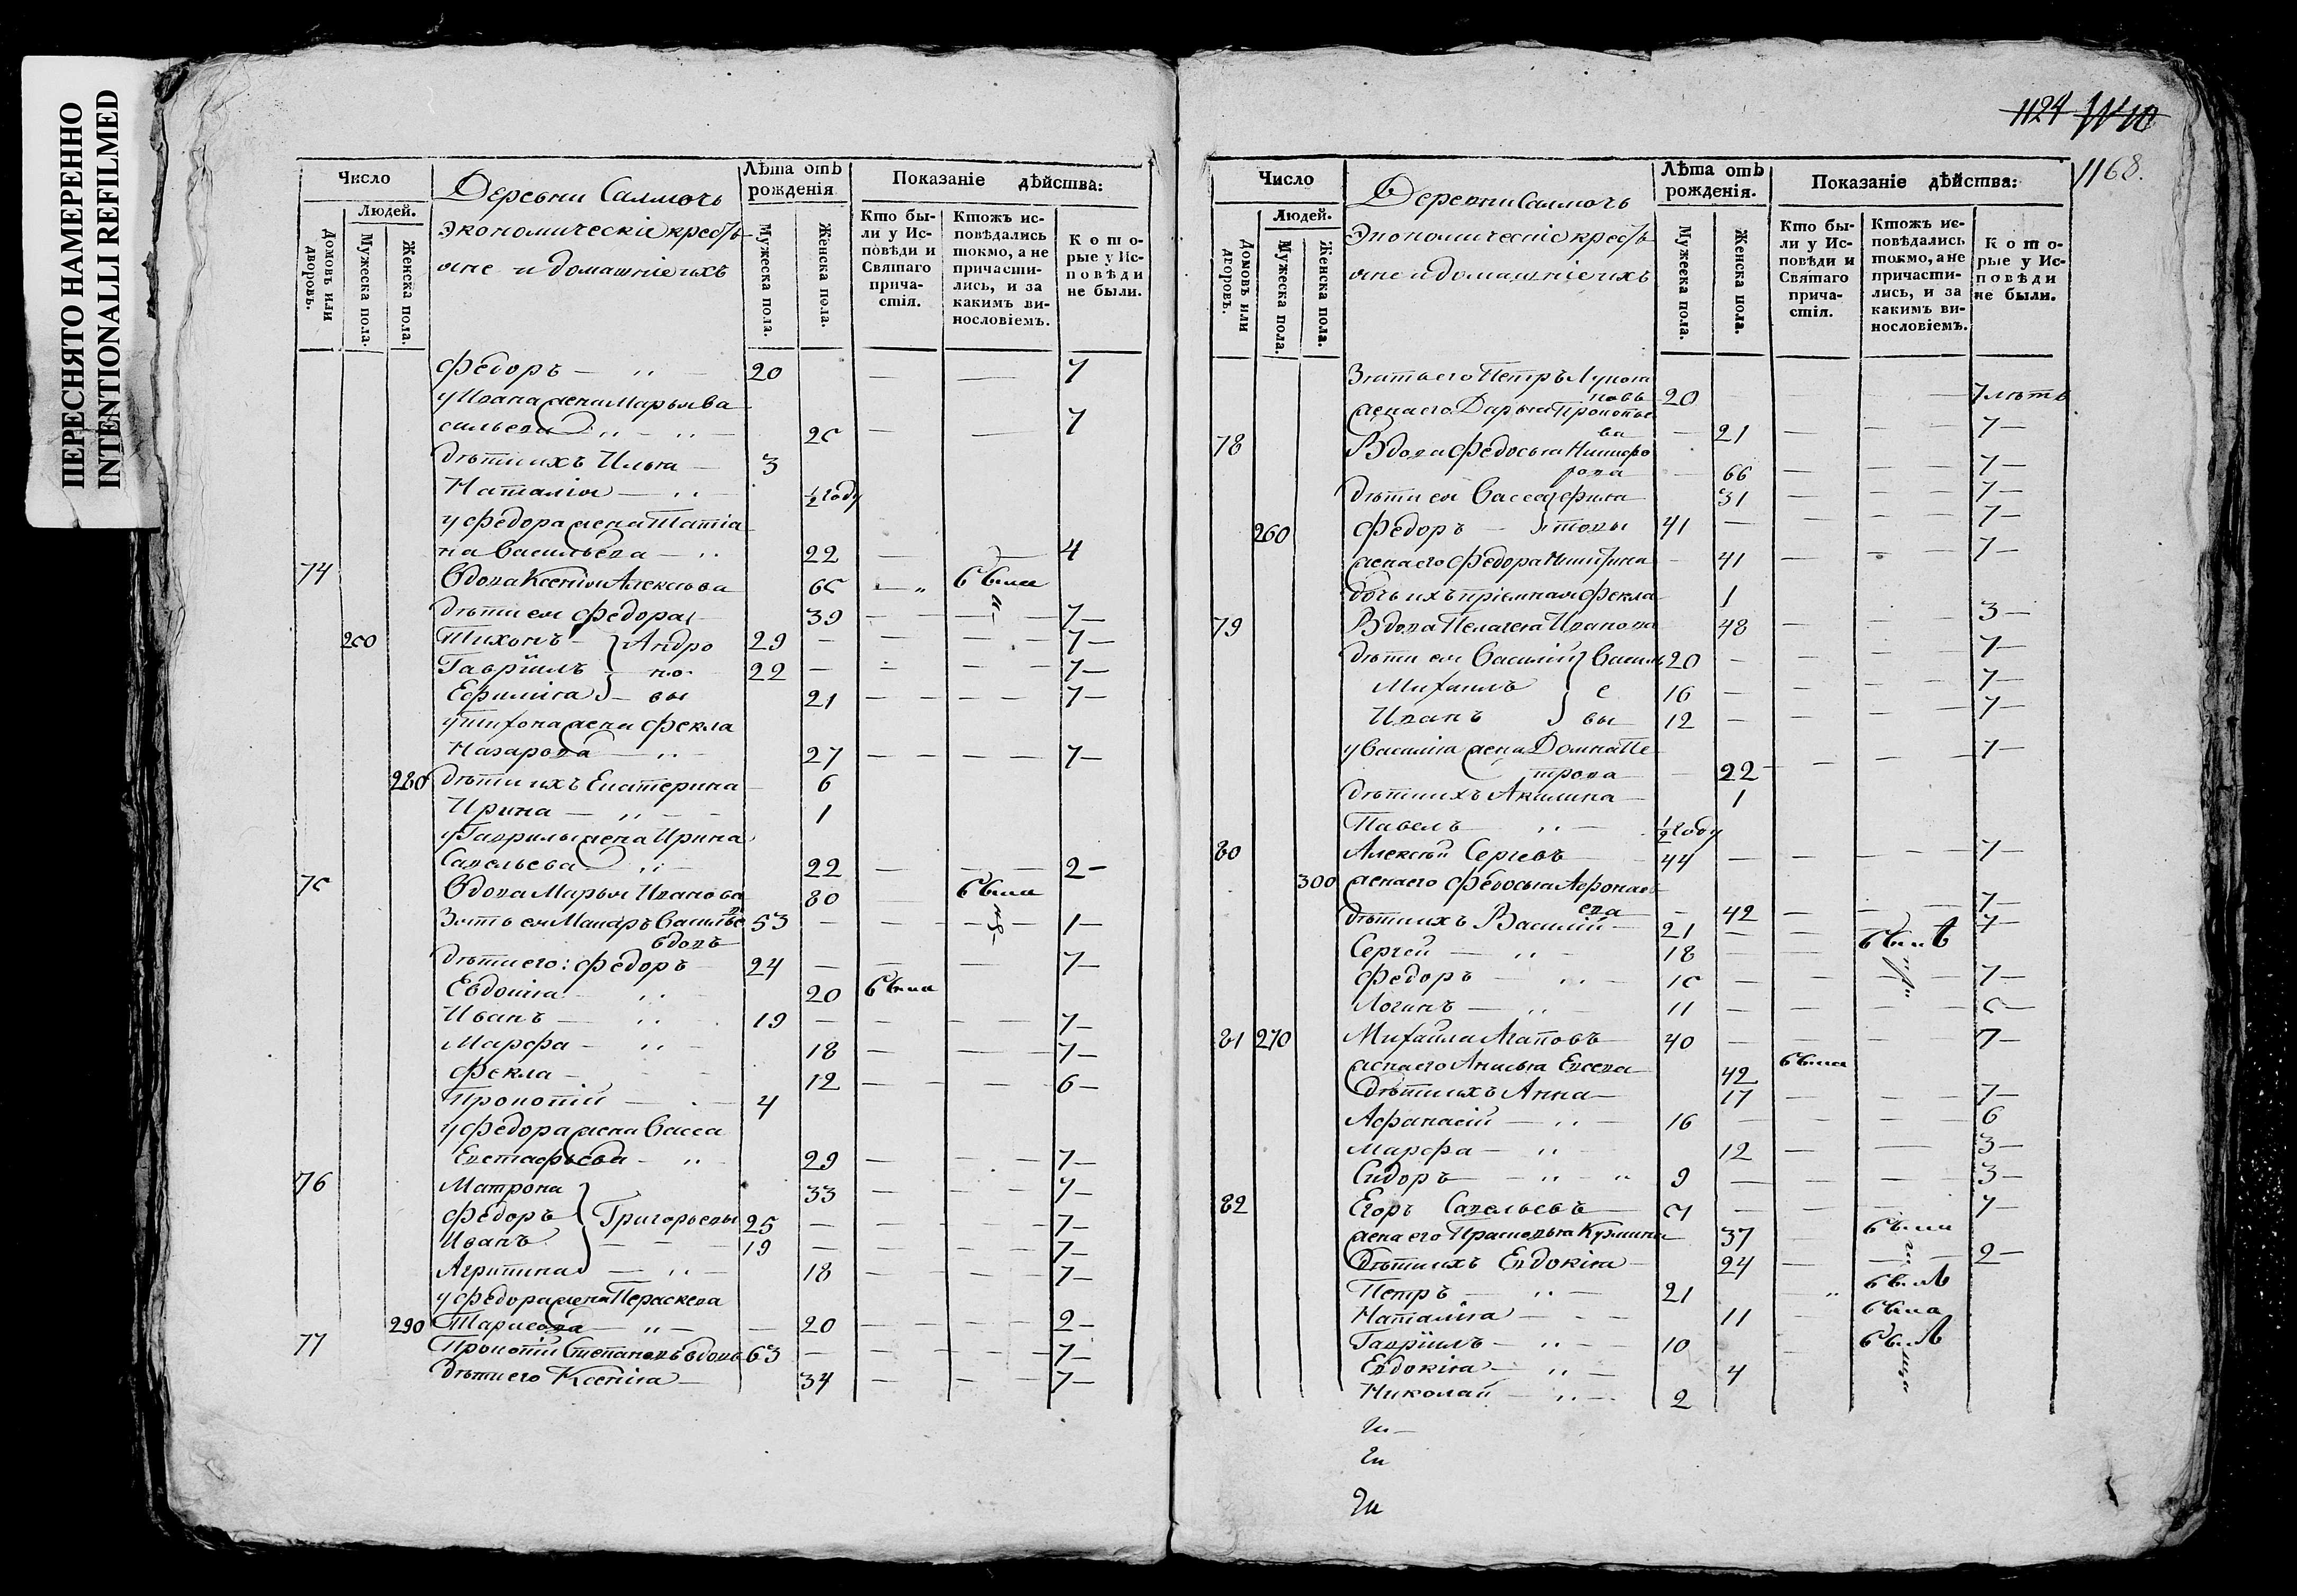 ПЕРЕСНЯТО НАМЕРЕННО
INTENTIONALLI REFILMED
Число
Людей.
Домовъ или дворовъ.
Мужеска пола.
Женска пола.
Деревни Салмочь
экономическіе кресть
яне и домашніе ихъ
Лѣта отъ рожденія
Мужеска пола.
Женска пола.
Показаніе дѣйства:
Кто были у Исповѣди и Святаго причастія.
Ктожъ исповѣдались токмо, а не причастились, и за какимъ винословіемъ.
Которые у Исповѣди не были.
Федоръ — 20 — — 7
у Ивана жена Марья Ва
сильева 25 — — 7
дѣти ихъ Илья — 3
Наталія — ½ году
у Федора жена Татіа
на Васильева — 22 — — 4
74 Вдова Ксенія Алексѣева 65 — была
дѣти ея Федора 39 — — 7 —
250 Тихонъ — Андро 29 — — 7 —
Гавріилъ — но 22 — — 7 —
Ефимія — вы 21 — — 7 —
у Тихона жена Фекла
Назарова 27 — — 7 —
280 дѣти ихъ Екатерина — 6
Ирина — 1
у Гаврилы жена Ирина
Савельева 22 — — 2 —
75 Вдова Марья Иванова 80 была
Зять ея Макаръ Василье
въ вдовъ 53 — — 1 —
дѣти его: Федоръ 24 — — 7 —
Евдокія 20 была
Иванъ — 19 — — 7 —
Марфа — 18 — — 7 —
Фекла — 12 — — 6 —
Прокопій — 4
у Федора жена Васса
Евстафьева — 29 — — 7 —
76 Матрона 33 — — 7 —
Федоръ Григорьевы 25 — — 7 —
Иванъ 19 — — 7 —
Агрипина 18 — — 7 —
у Федора жена Параскева
290 Тарасова — 20 — — 2 —
77 Прокопій Степановъ вдовъ 63 — — 7 —
дѣти его Ксенія — 34 — — 7 —
1124
1168.
Число
Людей.
Домовъ или дворовъ.
Мужеска пола.
Женска пола.
Деревни Салмочь
Экономическіе кресть
яне и домашніе ихъ
Лѣта отъ рожденія.
Мужеска пола.
Женска пола.
Показаніе дѣйства:
Кто были у Исповѣди и Святаго причастія.
Ктожъ исповѣдались токмо, а не причастились, и за какимъ винословіемъ.
Которые у Исповѣди не были.
Зять его Петръ
20 — — 7 лѣтъ
жена его Дарья Прокопье
ва — 21 — — 7 —
78 Вдова Федосья Никифо
рова — 66 — — 7 —
дѣти ея Васса 31 — — 7 —
260 Федоръ — 41 — — 7 —
жена его Федора Никитина — 41 — — 7 —
дочь ихъ пріемная Фекла 1
79 Вдова Пелагея Иванова 48 — — 3 —
дѣти ея Василій Василь 20 — — 7 —
Михаилъ е 16 — — 7 —
Иванъ вы 12 — — 7 —
у Василія жена Домна Пе
трова — 22 — — 7 —
дѣти ихъ Акилина — 1
Павелъ — ½ году
80 Алексѣй Сергевъ 44 — — 7 —
300 жена его Федосья Афонась
ева — 42 — — 7 —
дѣти ихъ Василій 21 — — 7 —
Сергей — 18 — былъ
Федоръ — 15 — — 7 —
Логинъ — 11 — — 5 —
81 270 Михайла Агаповъ 40 — — 7 —
жена его Анисья Евсева 42 была
Дѣти ихъ Анна — 17 — — 7 —
Афанасій — 16 — — 6
Марфа — 12 — — 3 —
Сидоръ — 9 — — 3 —
82 Егоръ Савельевъ — — 7 —
жена его Прасковья Кузмина 37 — была
Дѣти ихъ Евдокія — 24 — — 2 —
Петръ — 21 былъ
Наталія — 11 была
Гавріилъ — 10 былъ
Евдокія — 4
Николай — 2